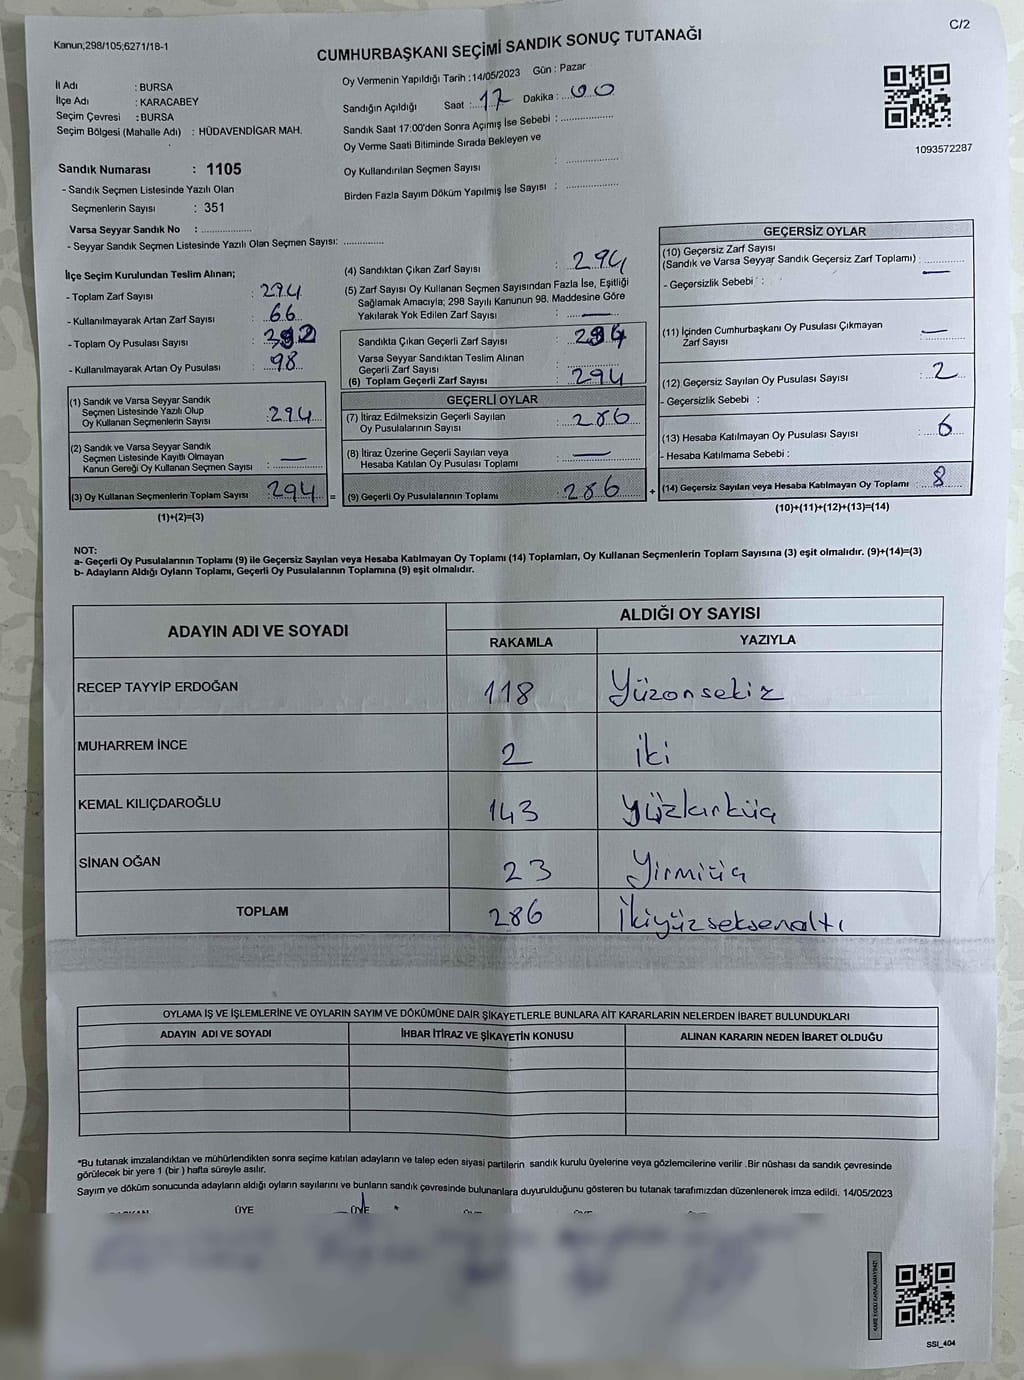 Kanun;298/105;6271/18-1
C/2
CUMHURBAŞKANI SEÇİMİ SANDIK SONUÇ TUTANAĞI
İl Adı : BURSA
İlçe Adı : KARACABEY
Seçim Çevresi : BURSA
Seçim Bölgesi (Mahalle Adı) : HÜDAVENDİGAR MAH.
Oy Vermenin Yapıldığı Tarih : 14/05/2023 Gün : Pazar
Sandığın Açıldığı Saat : 17 Dakika : 00
Sandık Saat 17:00'den Sonra Açımış İse Sebebi :
Oy Verme Saati Bitiminde Sırada Bekleyen ve
Oy Kullandırılan Seçmen Sayısı :
Birden Fazla Sayım Döküm Yapılmış İse Sayısı :
1093572287
Sandık Numarası : 1105
- Sandık Seçmen Listesinde Yazılı Olan
Seçmenlerin Sayısı : 351
Varsa Seyyar Sandık No :
- Seyyar Sandık Seçmen Listesinde Yazılı Olan Seçmen Sayısı:
İlçe Seçim Kurulundan Teslim Alınan;
- Toplam Zarf Sayısı :
- Kullanılmayarak Artan Zarf Sayısı : 66
- Toplam Oy Pusulası Sayısı :
- Kullanılmayarak Artan Oy Pusulası : 98
(1) Sandık ve Varsa Seyyar Sandık
Seçmen Listesinde Yazılı Olup
Oy Kullanan Seçmenlerin Sayısı : 294
(2) Sandık ve Varsa Seyyar Sandık
Seçmen Listesinde Kayıtlı Olmayan
Kanun Gereği Oy Kullanan Seçmen Sayısı : —
(3) Oy Kullanan Seçmenlerin Toplam Sayısı : 294 =
(1)+(2)=(3)
(4) Sandıktan Çıkan Zarf Sayısı : 294
(5) Zarf Sayısı Oy Kullanan Seçmen Sayısından Fazla İse, Eşitliği
Sağlamak Amacıyla; 298 Sayılı Kanunun 98. Maddesine Göre
Yakılarak Yok Edilen Zarf Sayısı : —
Sandıkta Çıkan Geçerli Zarf Sayısı : 294
Varsa Seyyar Sandıktan Teslim Alınan
Geçerli Zarf Sayısı :
(6) Toplam Geçerli Zarf Sayısı : 294
GEÇERLİ OYLAR
(7) İtiraz Edilmeksizin Geçerli Sayılan
Oy Pusulalarının Sayısı : 286
(8) İtiraz Üzerine Geçerli Sayılan veya
Hesaba Katılan Oy Pusulası Toplamı : —
(9) Geçerli Oy Pusulalarının Toplamı : 286 +
GEÇERSİZ OYLAR
(10) Geçersiz Zarf Sayısı
(Sandık ve Varsa Seyyar Sandık Geçersiz Zarf Toplamı) : —
- Geçersizlik Sebebi :
(11) İçinden Cumhurbaşkanı Oy Pusulası Çıkmayan
Zarf Sayısı : —
(12) Geçersiz Sayılan Oy Pusulası Sayısı : 2
- Geçersizlik Sebebi :
(13) Hesaba Katılmayan Oy Pusulası Sayısı : 6
- Hesaba Katılmama Sebebi :
(14) Geçersiz Sayılan veya Hesaba Katılmayan Oy Toplamı : 8
(10)+(11)+(12)+(13)=(14)
NOT:
a- Geçerli Oy Pusulalarının Toplamı (9) ile Geçersiz Sayılan veya Hesaba Katılmayan Oy Toplamı (14) Toplamları, Oy Kullanan Seçmenlerin Toplam Sayısına (3) eşit olmalıdır. (9)+(14)=(3)
b- Adayların Aldığı Oyların Toplamı, Geçerli Oy Pusulalarının Toplamına (9) eşit olmalıdır.
ADAYIN ADI VE SOYADI
ALDIĞI OY SAYISI
RAKAMLA YAZIYLA
RECEP TAYYİP ERDOĞAN 118 Yüzonsekiz
MUHARREM İNCE 2 iki
KEMAL KILIÇDAROĞLU 143 Yüzkırküç
SİNAN OĞAN 23 Yirmiüç
TOPLAM 286 İkiyüzseksenaltı
OYLAMA İŞ VE İŞLEMLERİNE VE OYLARIN SAYIM VE DÖKÜMÜNE DAİR ŞİKAYETLERLE BUNLARA AİT KARARLARIN NELERDEN İBARET BULUNDUKLARI
ADAYIN ADI VE SOYADI İHBAR İTİRAZ VE ŞİKAYETİN KONUSU ALINAN KARARIN NEDEN İBARET OLDUĞU
*Bu tutanak imzalandıktan ve mühürlendikten sonra seçime katılan adayların ve talep eden siyasi partilerin sandık kurulu üyelerine veya gözlemcilerine verilir .Bir nüshası da sandık çevresinde
görülecek bir yere 1 (bir ) hafta süreyle asılır.
Sayım ve döküm sonucunda adayların aldığı oyların sayılarını ve bunların sandık çevresinde bulunanlara duyurulduğunu gösteren bu tutanak tarafımızdan düzenlenerek imza edildi. 14/05/2023
ÜYE ÜYE
KARE KODU KARALAMAYINIZ!
SSI_404